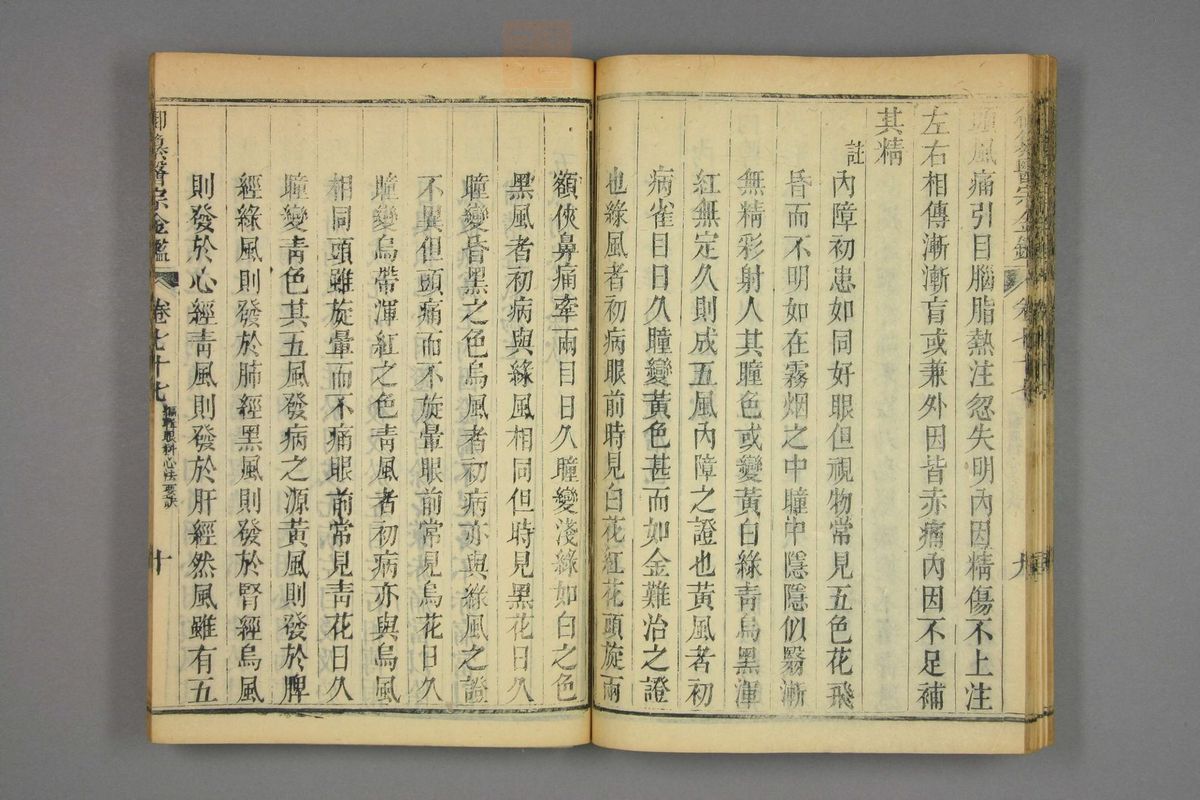 頭風痛引目腦脂熱注忽失明內因精傷不上注
左右相傳漸漸盲或兼外因皆赤痛內因不足補
其精
註
內障初患如同好眼但視物常見五色花飛
昏而不明如在霧烟之中瞳中隱隱似翳漸
無精彩射人其瞳色或變黃白綠青烏黑渾
紅無定久則成五風內障之證也黃風者初
病雀目日久瞳變黃色甚而如金難治之證
也綠風者初病眼前時見白花紅花頭旋兩
額俠鼻痛牽兩目日久瞳變淺綠如白之色
黑風者初病與綠風相同但時見黑花日久
瞳變昏黑之色烏風者初病亦與綠風之證
不異但頭痛而不旋暈眼前常見烏花日久
瞳變烏帶渾紅之色青風者初病亦與烏風
相同頭雖旋暈而不痛眼前常見青花日久
瞳變青色其五風發病之源黃風則發於脾
經綠風則發於肺經黑風則發於腎經烏風
則發於心經青風則發於肝經然風雖有五
御纂醫宗金鑑
卷七十七
編輯眼科心法要訣
十